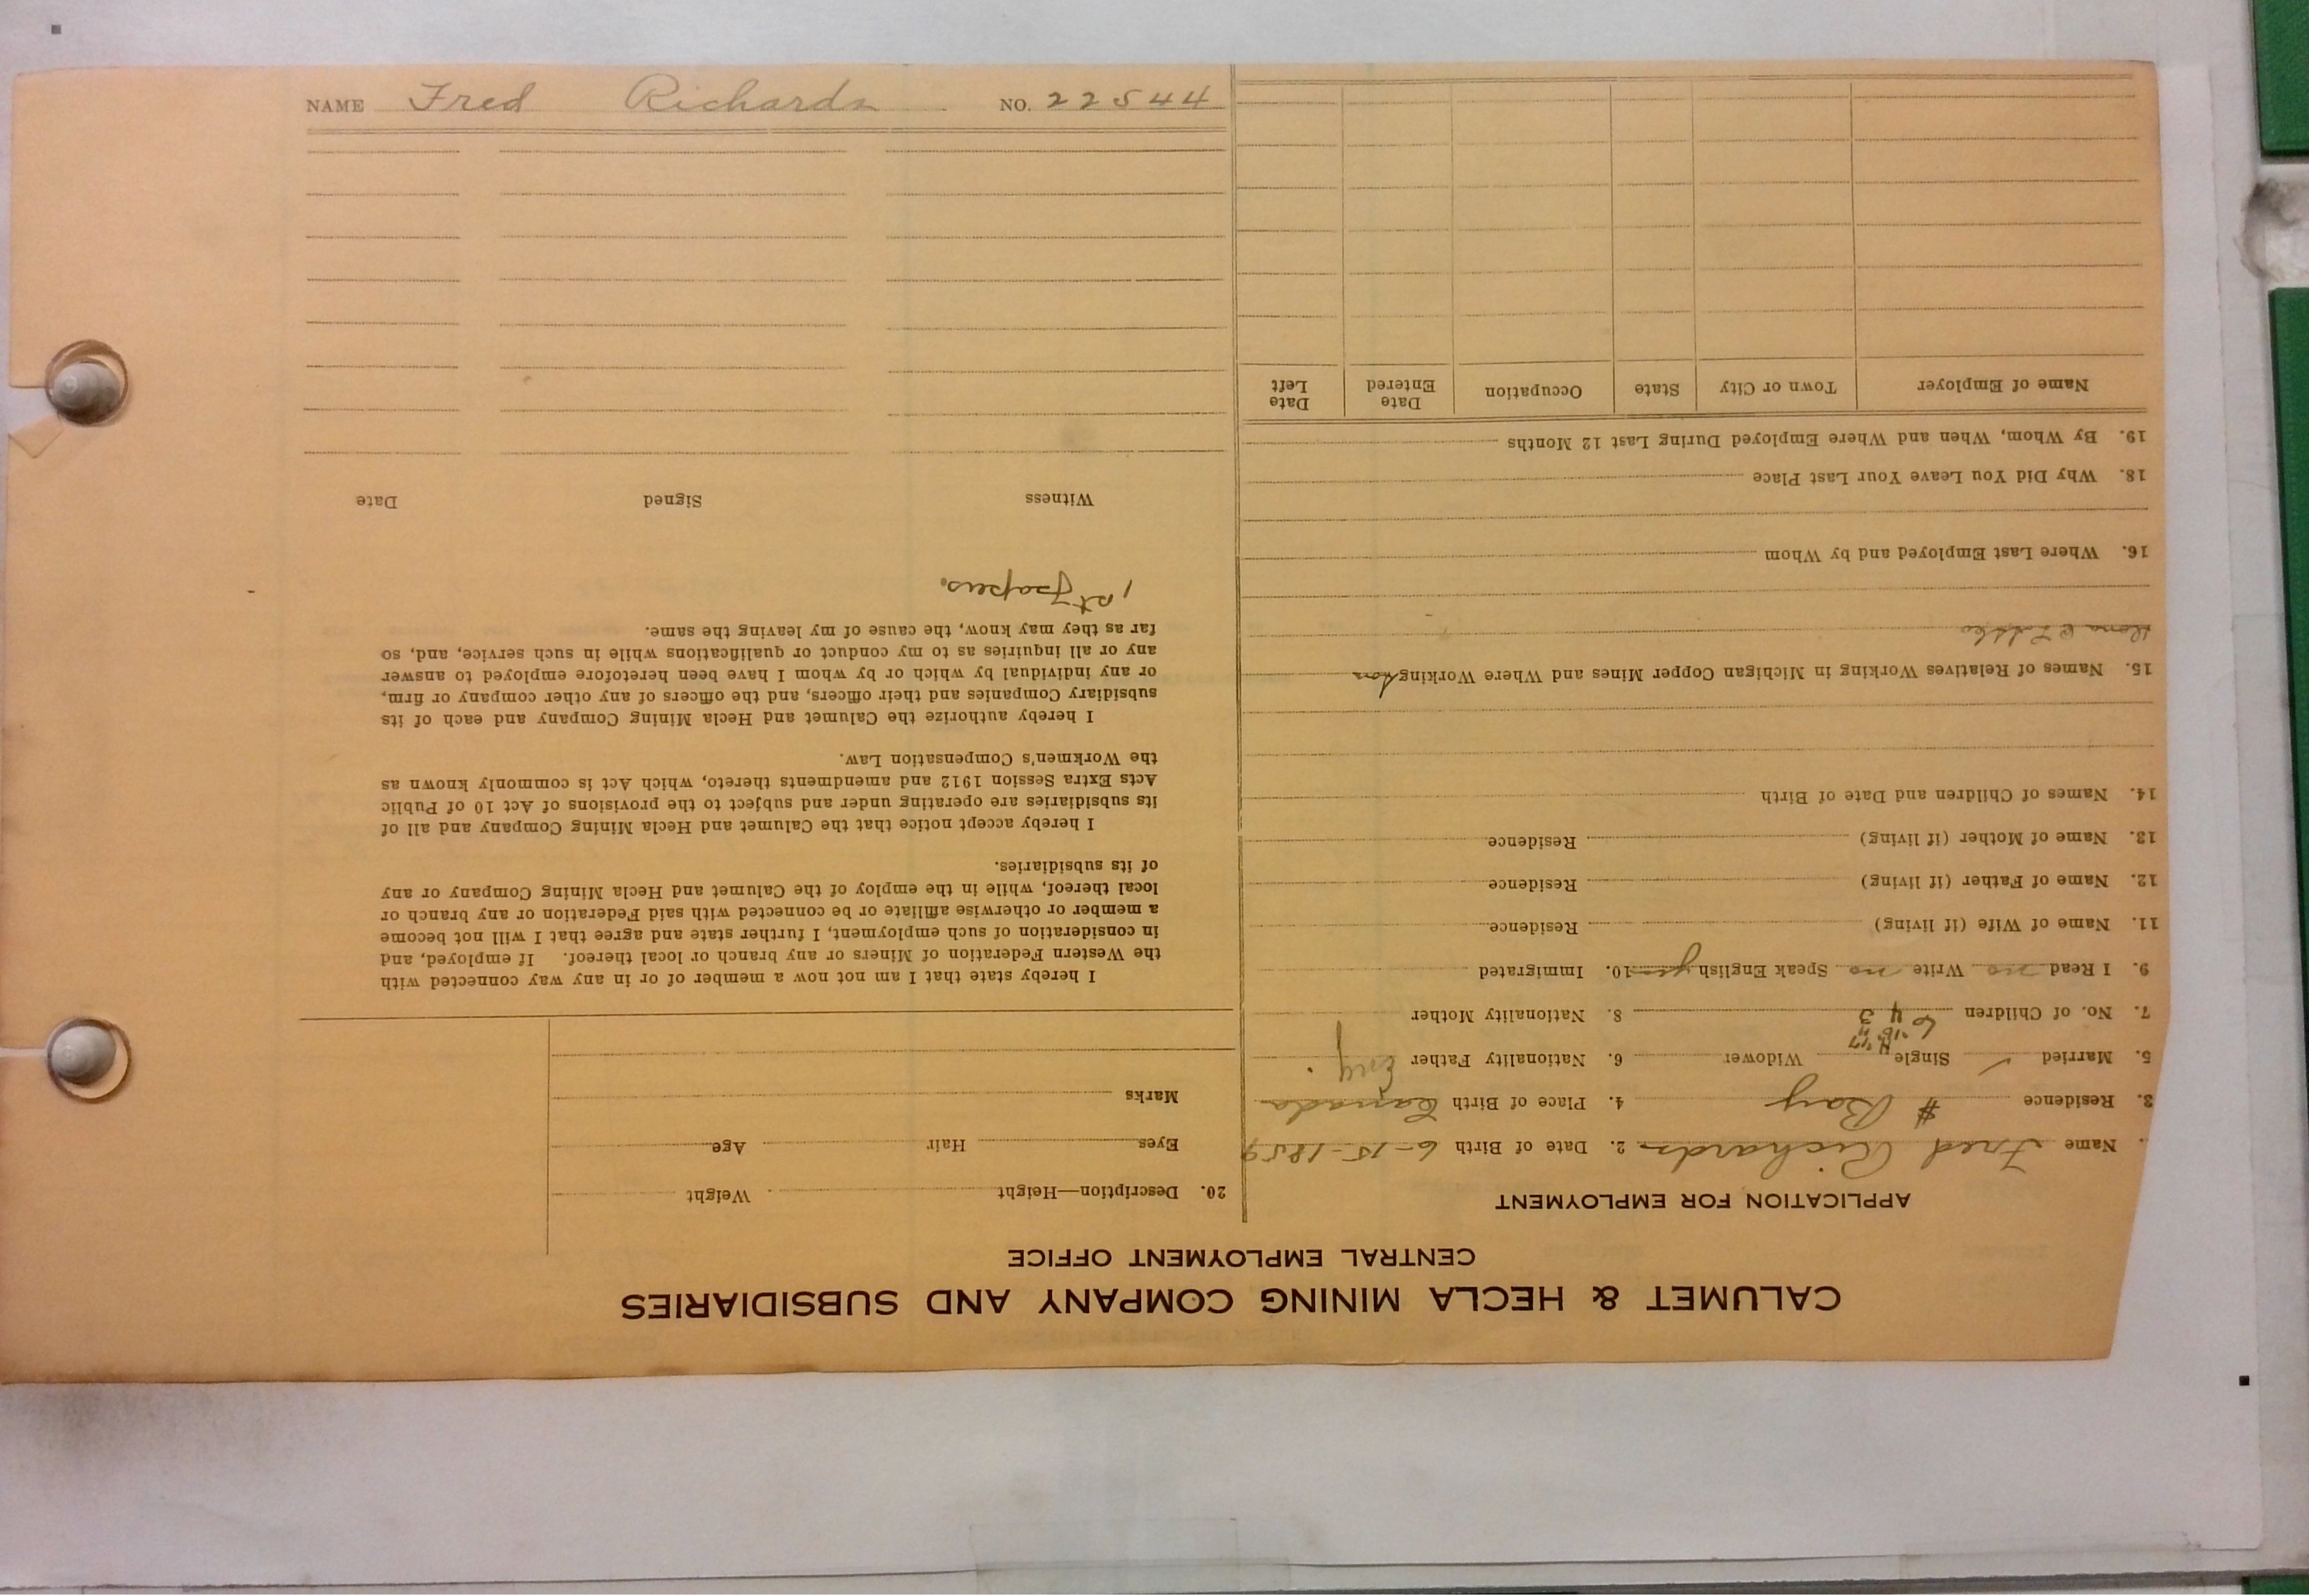 NAME Fred Richards NO. 22544
CALUMET & HECLA MINING COMPANY AND SUBSIDIARIES
CENTRAL EMPLOYMENT OFFICE
APPLICATION FOR EMPLOYMENT
Name Fred Richards 2. Date of Birth 6-15-1859
3. Residence # Ray 4. Place of Birth Canada
5. Married ✓ Single Widower 6. Nationality Father Eng.
7. No. of Children 6 4 3 8. Nationality Mother
9. I Read no Write no Speak English yes 10. Immigrated
11. Name of Wife (if living) Residence
12. Name of Father (if living) Residence
13. Name of Mother (if living) Residence
14. Names of Children and Date of Birth
15. Names of Relatives Working in Michigan Copper Mines and Where Working
16. Where Last Employed and by Whom
18. Why Did You Leave Your Last Place
19. By Whom, When and Where Employed During Last 12 Months
Name of Employer Town or City State Occupation Date Entered Date Left
20. Description—Height Weight
Eyes Hair Age
Marks
I hereby state that I am not now a member of or in any way connected with
the Western Federation of Miners or any branch or local thereof. If employed, and
in consideration of such employment, I further state and agree that I will not become
a member or otherwise affiliate or be connected with said Federation or any branch or
local thereof, while in the employ of the Calumet and Hecla Mining Company or any
of its subsidiaries.
I hereby accept notice that the Calumet and Hecla Mining Company and all of
its subsidiaries are operating under and subject to the provisions of Act 10 of Public
Acts Extra Session 1912 and amendments thereto, which Act is commonly known as
the Workmen's Compensation Law.
I hereby authorize the Calumet and Hecla Mining Company and each of its
subsidiary Companies and their officers, and the officers of any other company or firm,
or any individual by which or by whom I have been heretofore employed to answer
any or all inquiries as to my conduct or qualifications while in such service, and, so
far as they may know, the cause of my leaving the same.
1st papers.
Witness Signed Date